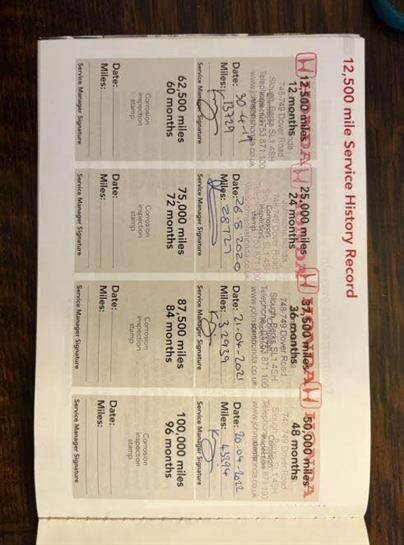 12,500 mile Service History Record
HONDA
12,500 miles
12 months
748-749 Dover Road
Slough, Berks SL1 4SH
Date: 30-4-19
Miles: 13729
Service Manager Signature
HONDA
25,000 miles
24 months
Date: 26-8-2020
Miles: 28727
Service Manager Signature
HONDA
37,500 miles
36 months
748-749 Dover Road
Slough, Berks SL1 4SH
Date: 21-04-2021
Miles: 32939
Service Manager Signature
HONDA
50,000 miles
48 months
Date: 20-04-2022
Miles: 43894
Service Manager Signature
62,500 miles
60 months
Corrosion
inspection
stamp
Date:
Miles:
Service Manager Signature
75,000 miles
72 months
Corrosion
inspection
stamp
Date:
Miles:
Service Manager Signature
87,500 miles
84 months
Corrosion
inspection
stamp
Date:
Miles:
Service Manager Signature
100,000 miles
96 months
Corrosion
inspection
stamp
Date:
Miles:
Service Manager Signature